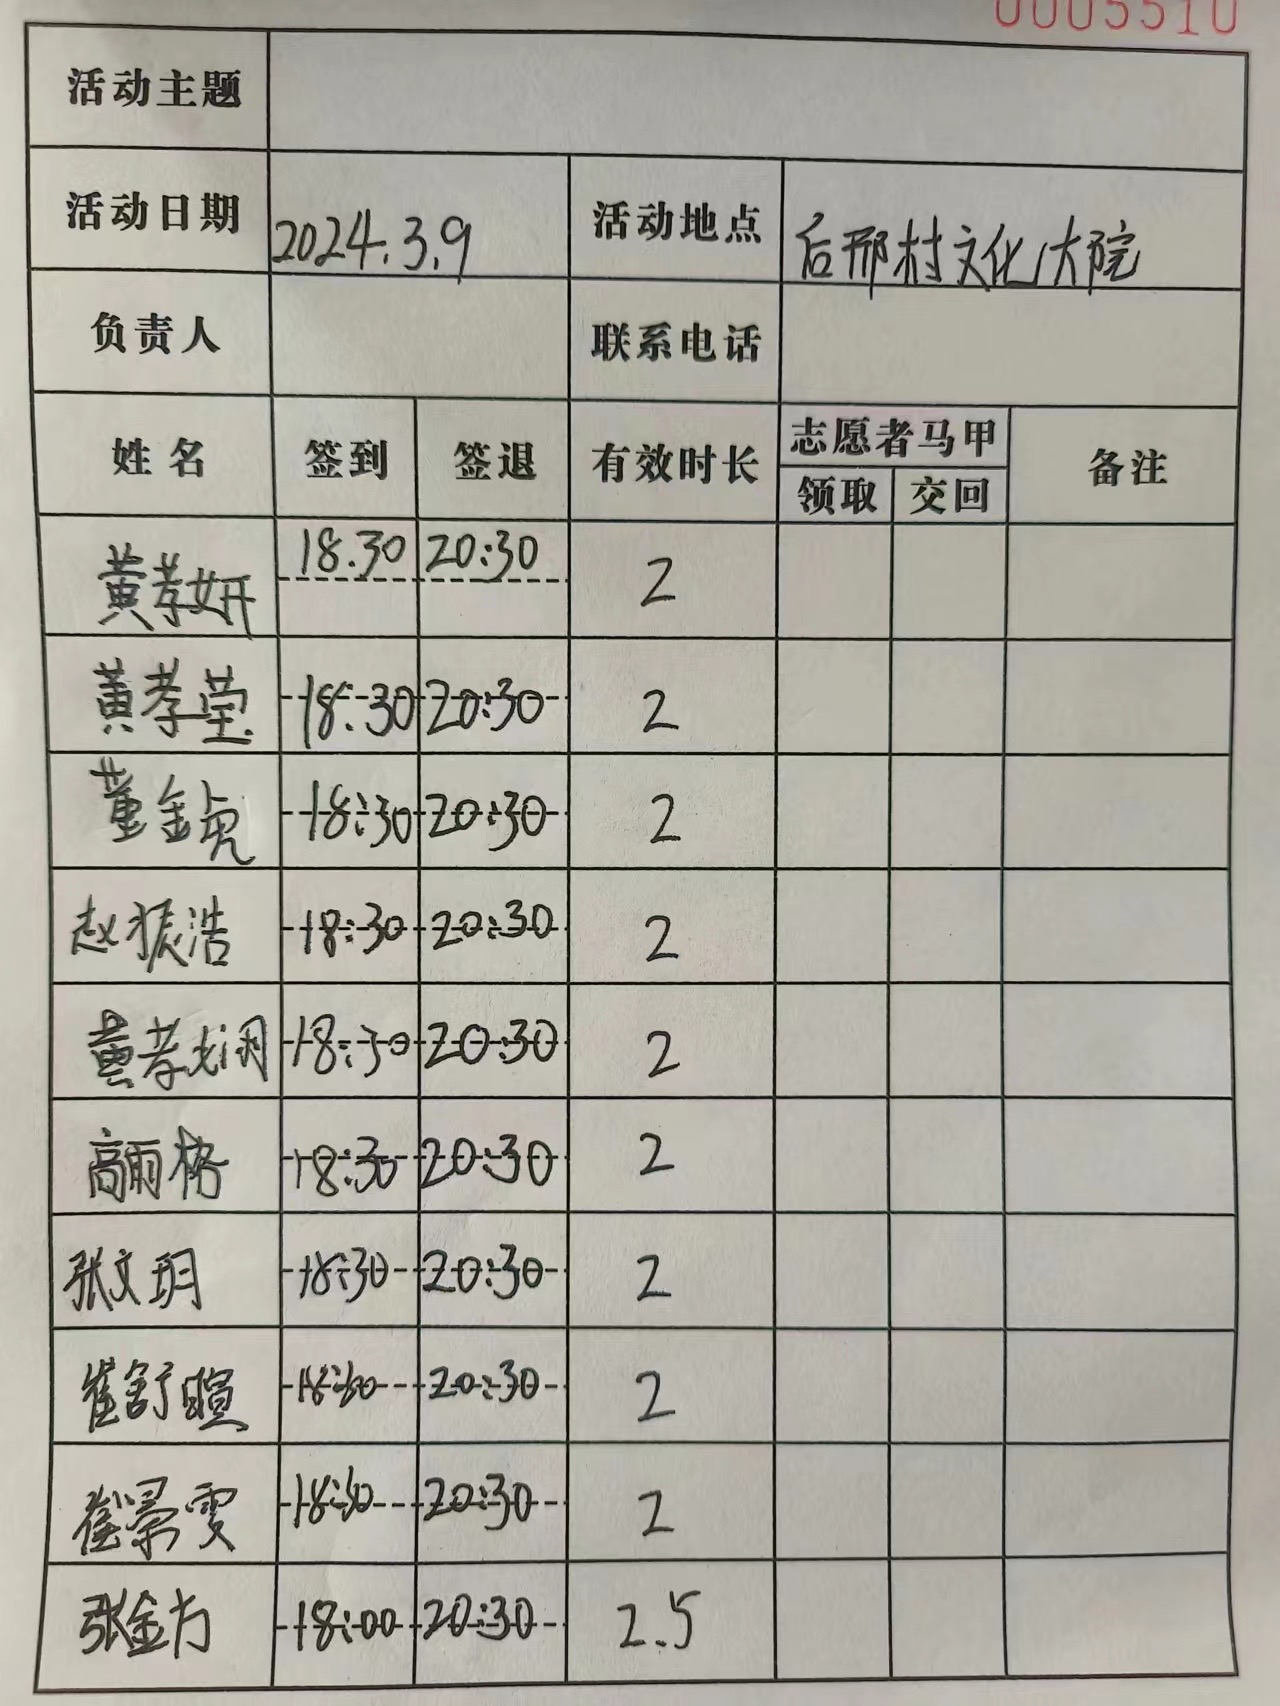 0005510
活动主题
活动日期 2024.3.9 活动地点 后邢村文化大院
负责人 联系电话
姓名 签到 签退 有效时长 志愿者马甲 备注
领取 交回
黄孝妍 18.30 20:30 2
黄孝莹 18:30 20:30 2
董金贞 18:30 20:30 2
赵振浩 18:30 20:30 2
黄孝 18:30 20:30 2
高雨格 18:30 20:30 2
张文玥 18:30 20:30 2
崔舒暄 18:30 20:30 2
崔景雯 18:30 20:30 2
张金方 18:00 20:30 2.5